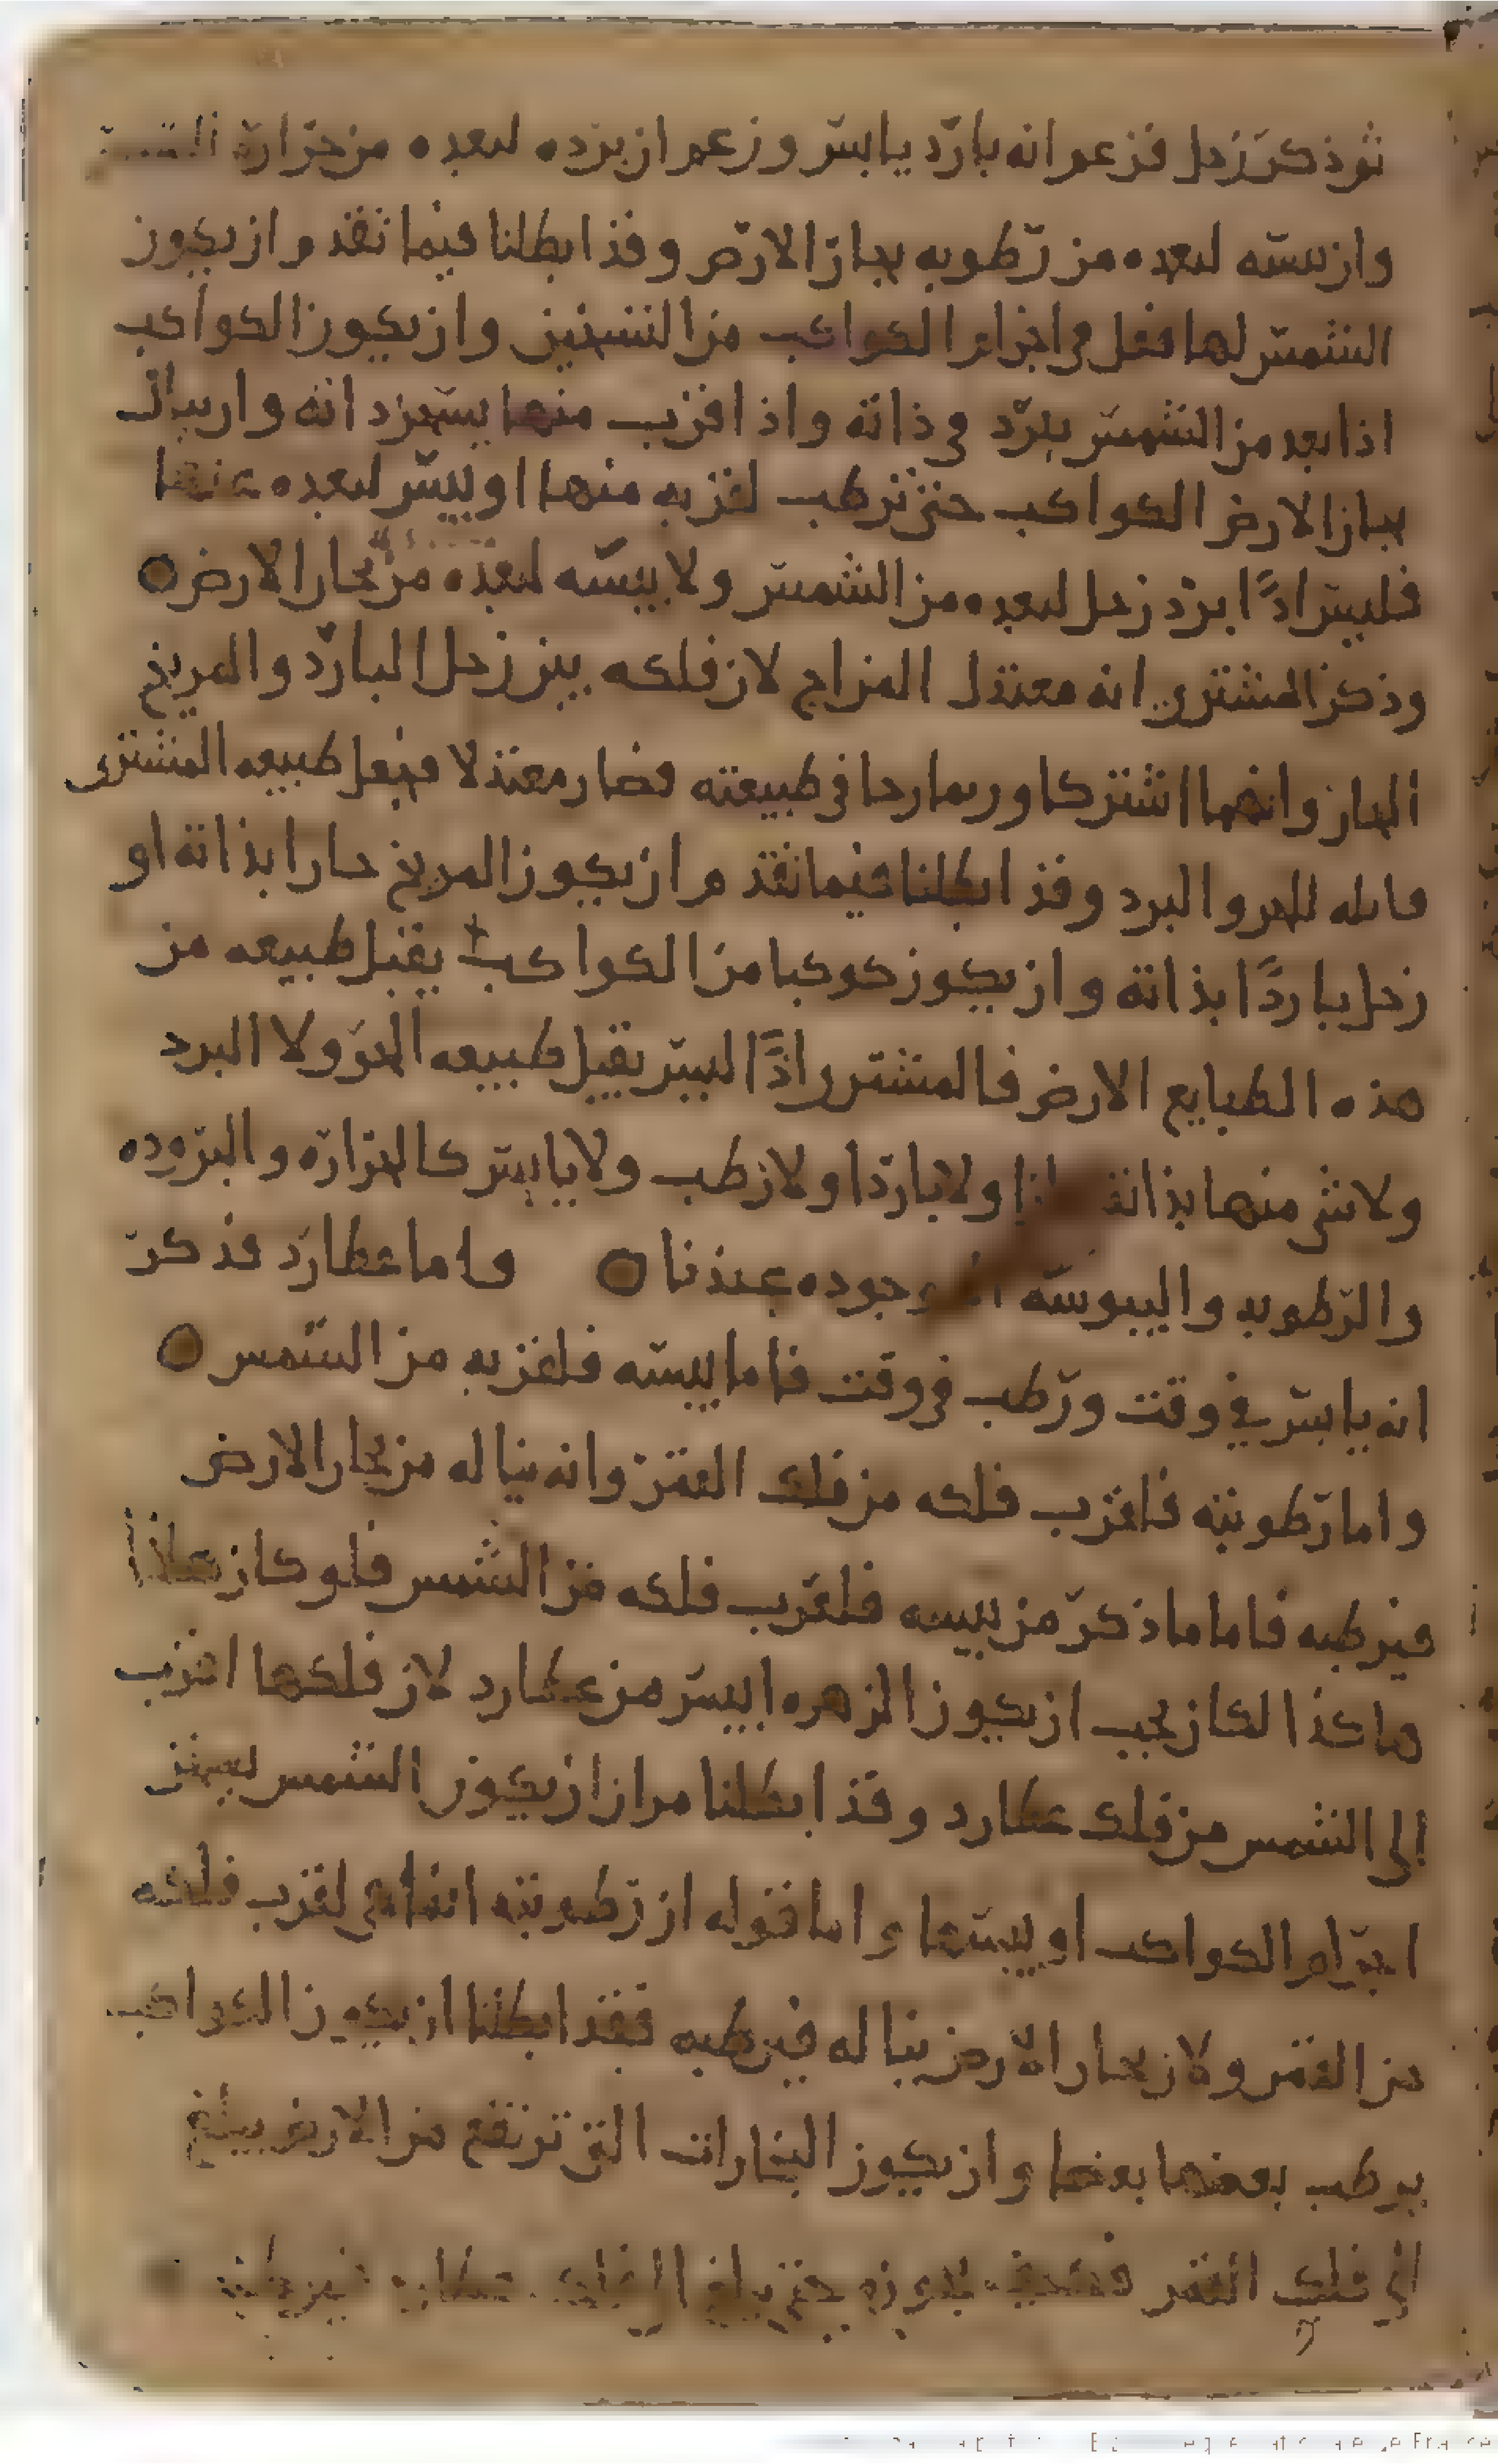 ثم ذكر زحل فزعم انه بارد يابس وزعم ان برده لبعده من حرارة الشمس
وان يبسه لبعده من رطوبه بخار الارض وقد ابطلنا فيما تقدم ان يكون
الشمس لها فعل في اجزاء الكواكب من التسخين وان يكون الكواكب
اذا بعد من الشمس يبرد في ذاته واذا اقرب منها يسخن ذاته وان ينال
بخار الارض الكواكب حتى ترطب لقربه منها او ييبس لبعده عنها
فليس اذًا برد زحل لبعده من الشمس ولا يبسه لبعده من بخار الارض
وذكر المشتري انه معتدل المزاج لان فلكه بين زحل البارد والمريخ
الحار وانهما اشتركا في طبيعته فصار معتدلا فجعل طبيعه المشتري
قابله للحر والبرد وقد ابطلنا فيما تقدم ان يكون المريخ حارا بذاته او
زحل باردًا بذاته وان يكون كوكبا من الكواكب يقبل طبيعه من
هذه الطبايع الارض فالمشتري اذًا ليس تقبل طبيعه الحر ولا البرد
ولا شي منها بذاته ولا باردا ولا رطب ولا يابس كالحراره والبروده
والرطوبه واليبوسه الموجوده عندنا واما عطارد فذكر
انه يابس في وقت ورطب في وقت فاما يبسه فلقربه من الشمس
واما رطوبته فلقرب فلكه من فلك القمر وانه يناله من بخار الارض
فيرطبه فاما ما ذكر من يبسه فلقرب فلكه من الشمس فلو كان هذا
هاكذا لكان يجب ان يكون الزهره ايبس من عطارد لان فلكها اقرب
الى الشمس من فلك عطارد وقد ابطلنا ان يكون الشمس يسخن
اجرام الكواكب او ييبسها واما قوله ان رطوبته انما هي لقرب فلكه
من القمر ولان بخار الارض يناله فيرطبه فقد ابطلنا ان يكون الكواكب
يرطب بعضها بعضا وان يكون البخارات التي ترتفع من الارض يبلغ
الى فلك القمر فلك عطارد